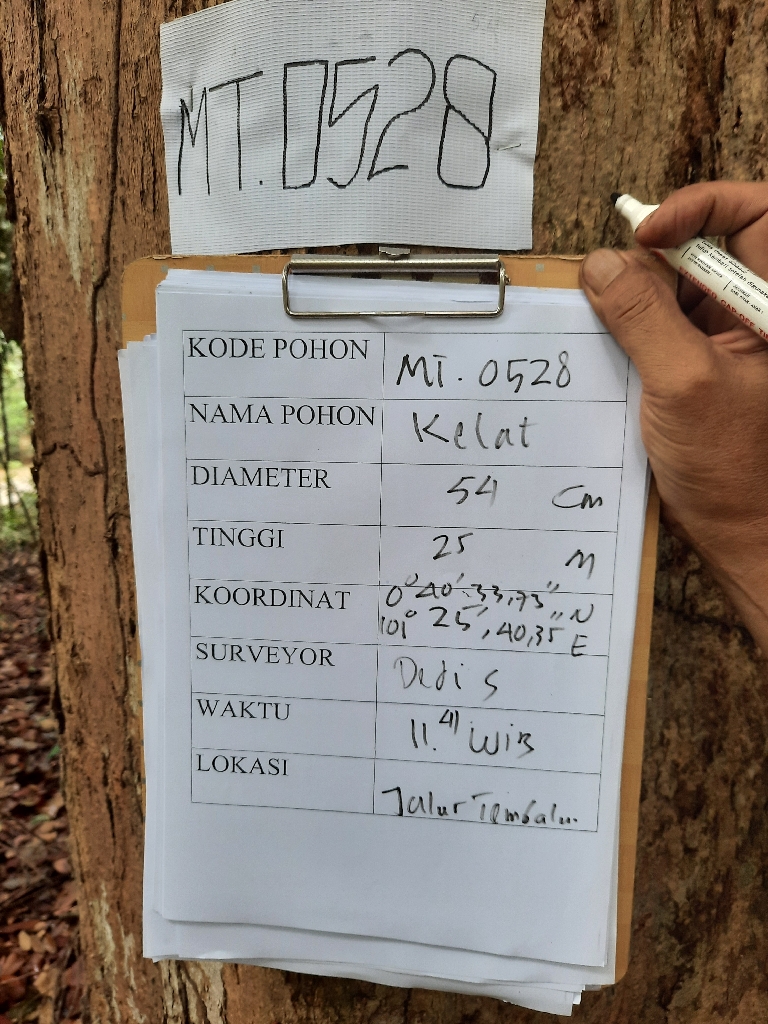 MT.0528
KODE POHON MT. 0528
NAMA POHON Kelat
DIAMETER 54 Cm
TINGGI 25 M
KOORDINAT 0° 40' 33,73" N
101° 25', 40,35" E
SURVEYOR Dedi S
WAKTU 11.41 WIB
LOKASI Jalur